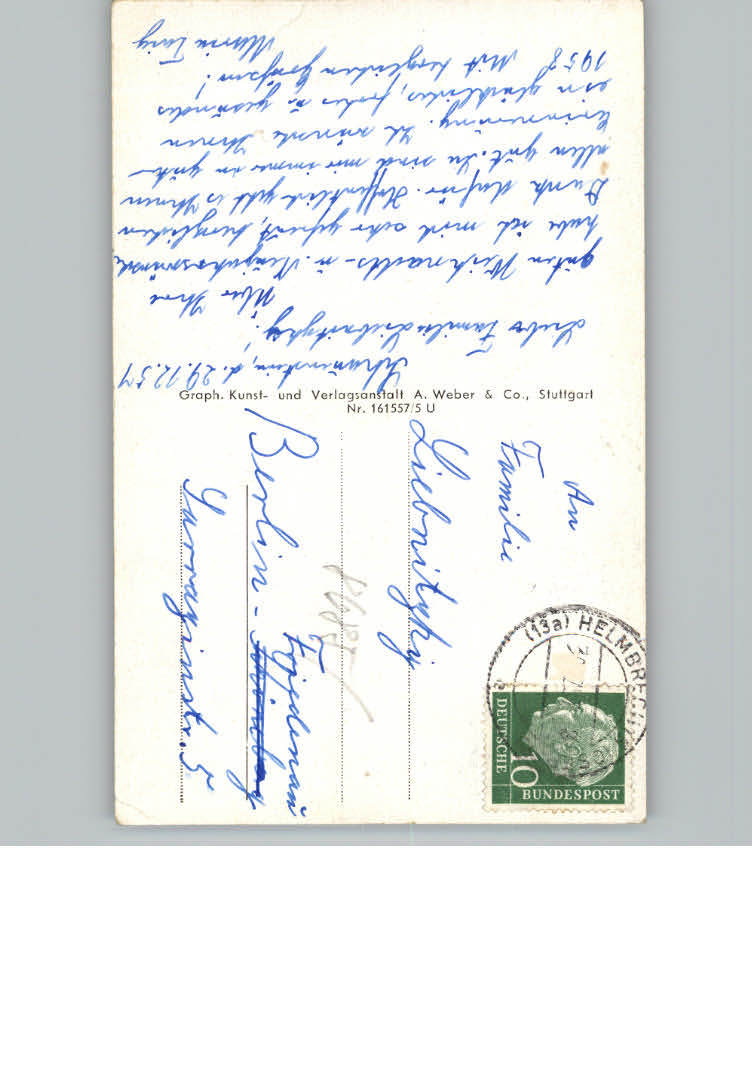 Schauenstein, d. 29.12.57
Liebe Familie Liebnitzky!
Über Ihre
guten Weihnachts- u. Neujahrswünsche
habe ich mich sehr gefreut, herzlichen
Dank dafür. Hoffentlich geht es Ihnen
allen gut. Sie sind mir immer in guter
Erinnerung. Ich wünsche Ihnen
ein glückliches, frohes u. gesundes
1958 Mit herzlichen Grüßen!
Maria
Graph. Kunst- und Verlagsanstalt A. Weber & Co., Stuttgart
Nr. 161557/5 U
An
Familie
Liebnitzky
Berlin-
Friedenau
Sarrazinstr. 5
(13a) HELMBRECHTS
DEUTSCHE
BUNDESPOST
10